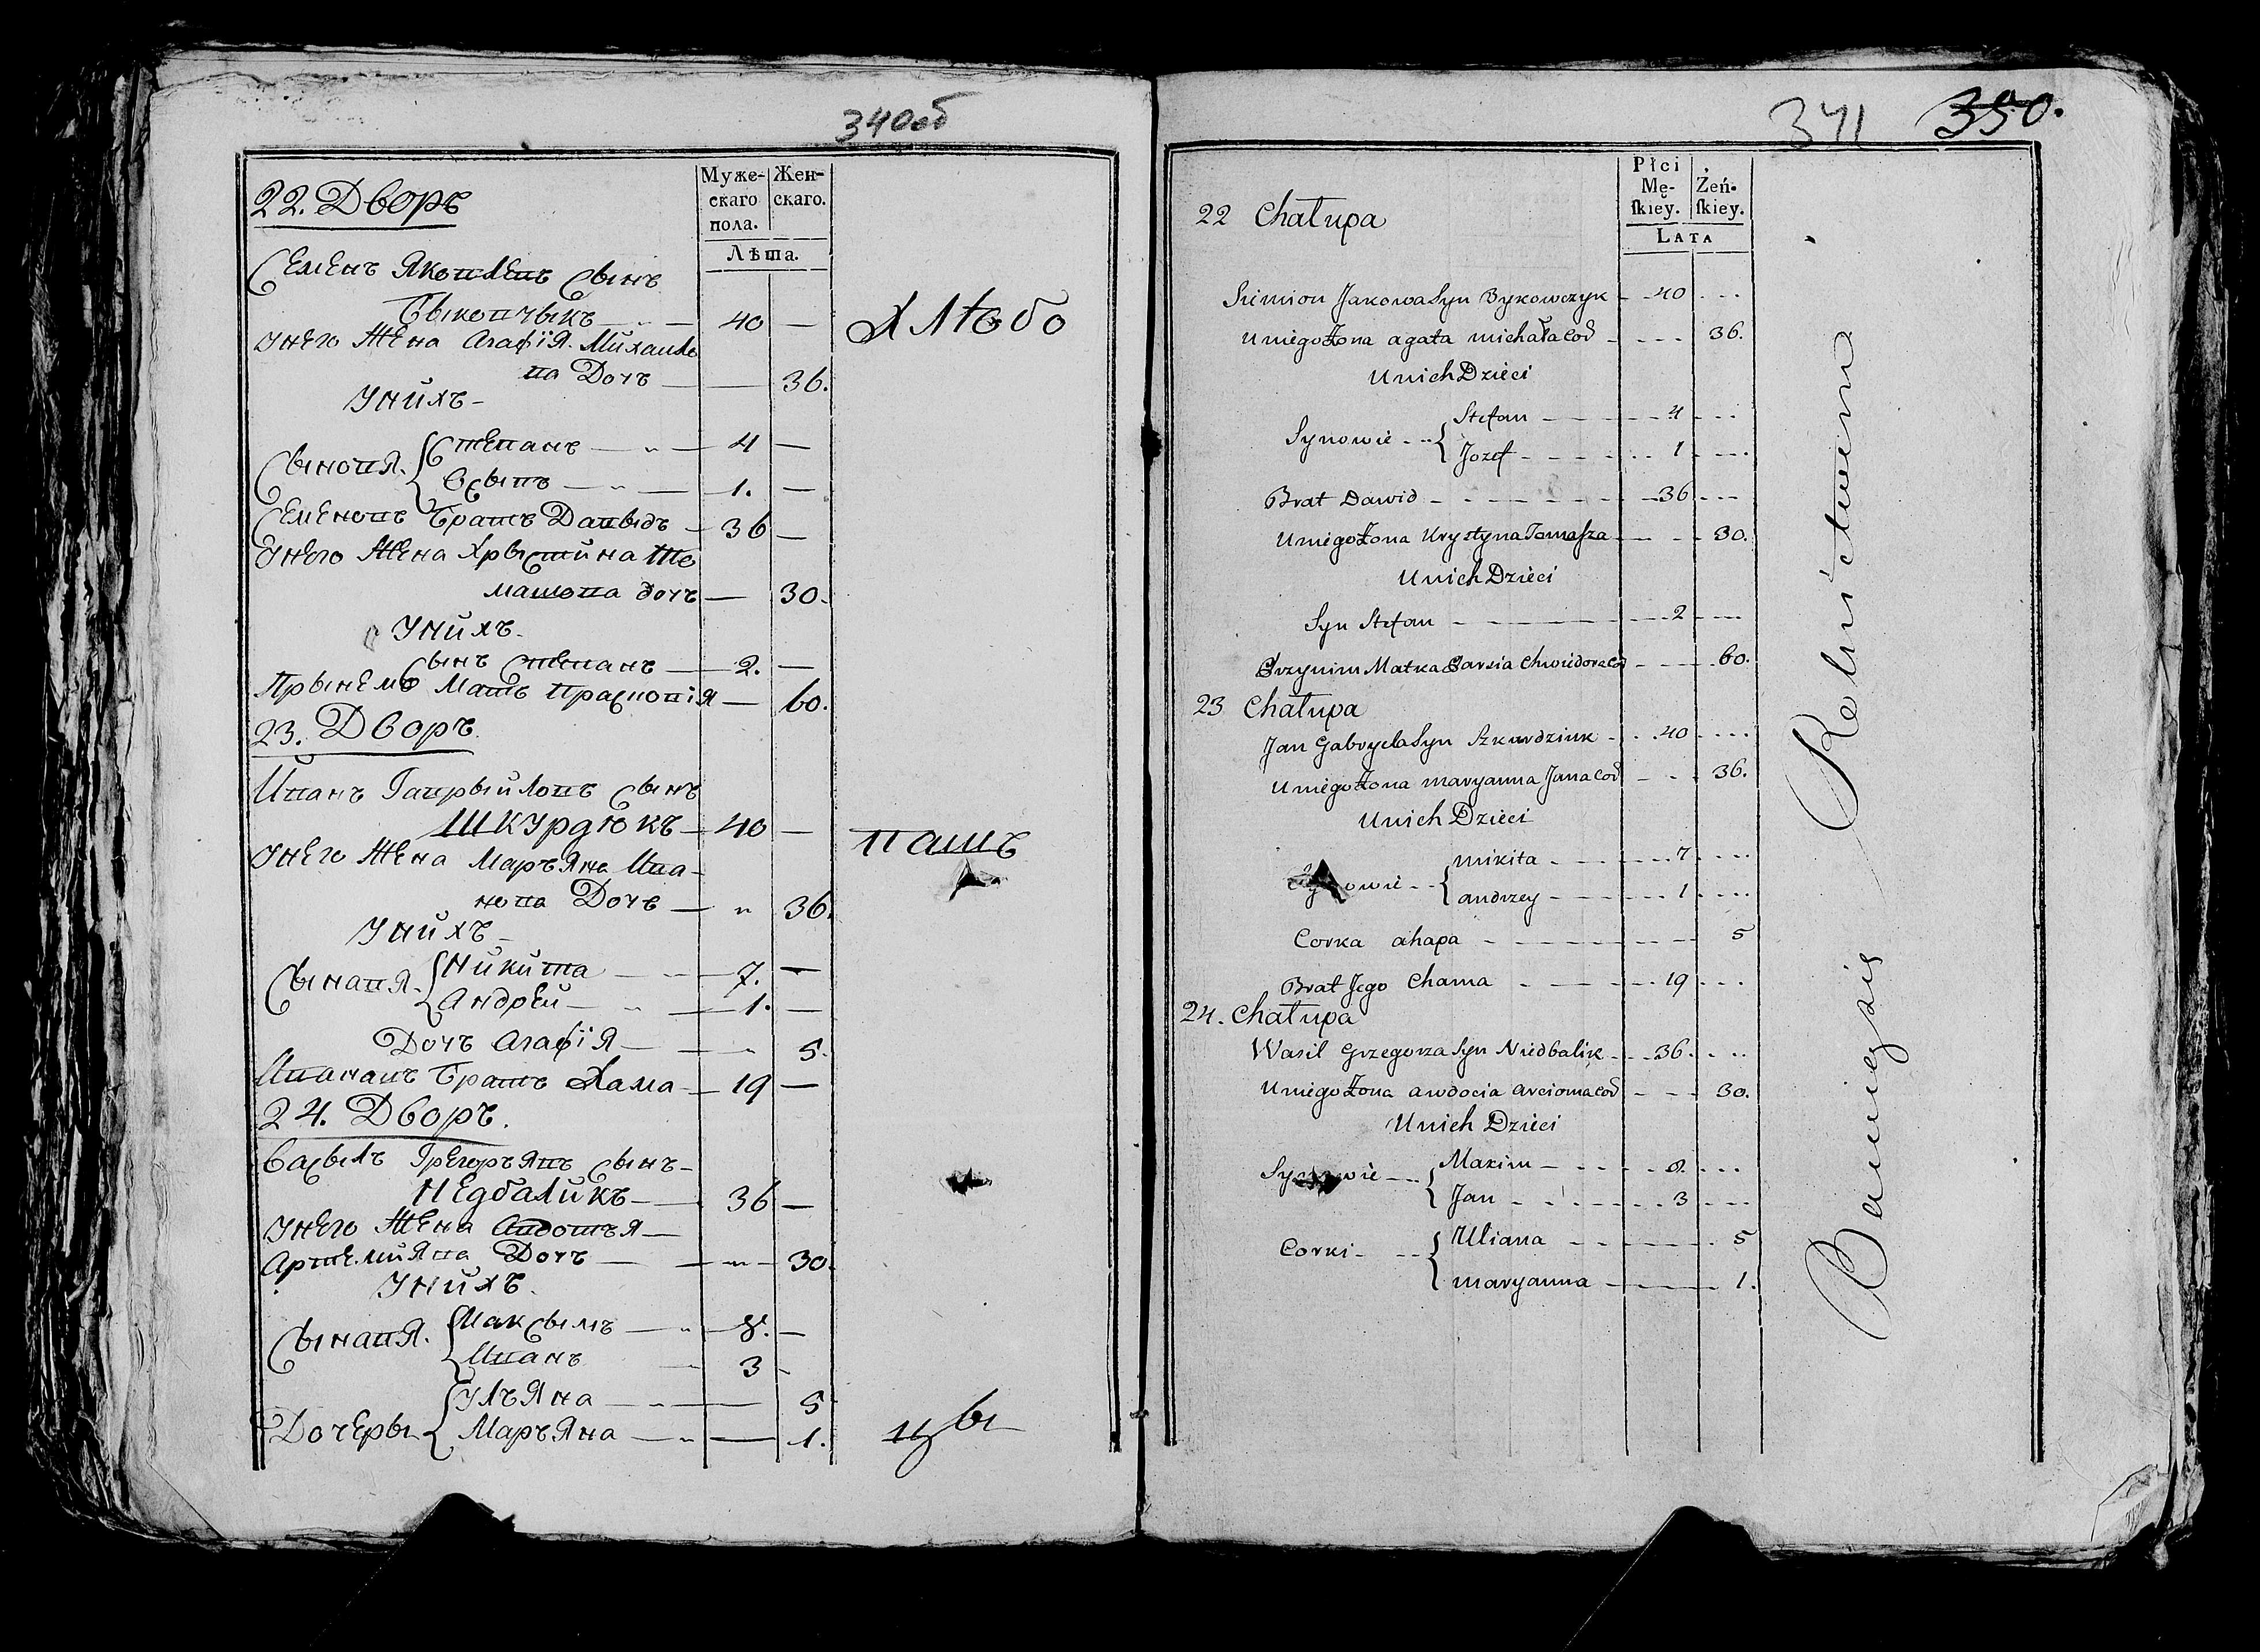 340об
Муже-
скаго
пола.
Жен-
скаго.
Лѣта.
22. Дворъ
Семенъ Яковлевъ Сынъ
Быковчыкъ — 40 —
Унего Жена Агафія Михайло
ва Дочъ — 36.
Унйхъ -
Сыновя. { Степанъ — „ — 4 —
Осыпъ — „ — 1. —
Семеновъ Братъ Давыдъ — 36 —
Унего Жена Хрыстйна То
машова дочъ — 30.
Унйхъ.
Сынъ Степанъ — 2. —
Прынемъ Мать Прасковія — 60.
23. Дворъ.
Иванъ Гаврыйловъ Сынъ
Шкурдюкъ — 40 —
Унего Жена Маръяна Ива-
нова Дочъ — „ 36.
Унйхъ -
Сынавя. { Нйкйта — „ — 7. —
Андрей — „ — 1. —
Дочъ Агафія — „ 5.
Ивановъ Братъ Хама — 19 —
24. Дворъ.
Васылъ Грегоръявъ Сынъ -
Недбалйкъ — 36 —
Унего Жена Авдотъя —
Артемйява Дочъ — „ — 30.
Унйхъ.
Сынавя. { Максымъ — „ — 8. —
Иванъ — 3 -
Дочеры { Улъяна — „ — 5
Маръяна — „ — 1.
Хлѣбо
паш
цы
341 350.
Płci
Mę-
ſkiey.
Żeń-
ſkiey.
LATA
22 Chałupa
Siemion Jakowa Syn Bykowczyk - - 40 - - -
U niego Żona agata michała Cod - - - - 36.
U nich Dzieci
Synowie - - { Stefan - - - 4 - - -
Jozef - - - 1 - - -
Brat Dawid - - - 36 - - -
U niego Żona Krystyna Tomaſza - - - 30.
U nich Dzieci
Syn Stefan - - - 2 - - -
Przynim Matka Parsia Chwiedora Cod - - - 60.
23 Chałupa
Jan Gabryela Syn Szkurdziuk - - 40 - - -
U niego Żona maryanna Jana Cod - - - 36.
U nich Dzieci
Synowie - - { mikita - - - 7 - - -
andrzey - - - 1 - - -
Corka ahapa - - - 5
Brat Jego Chama - - - 19 - - -
24. Chałupa
Wasil Grzegorza Syn Niedbalik - - 36 - - -
U niego Żona awdocia arcioma Cod - - - 30.
U nich Dzieci
Synowie - - { Maxim - - - 8. - - -
Jan - - - 3 - - -
Corki - - { Uliana - - - 5
maryanna - - - 1.
Rolnictwem
Bawiący się